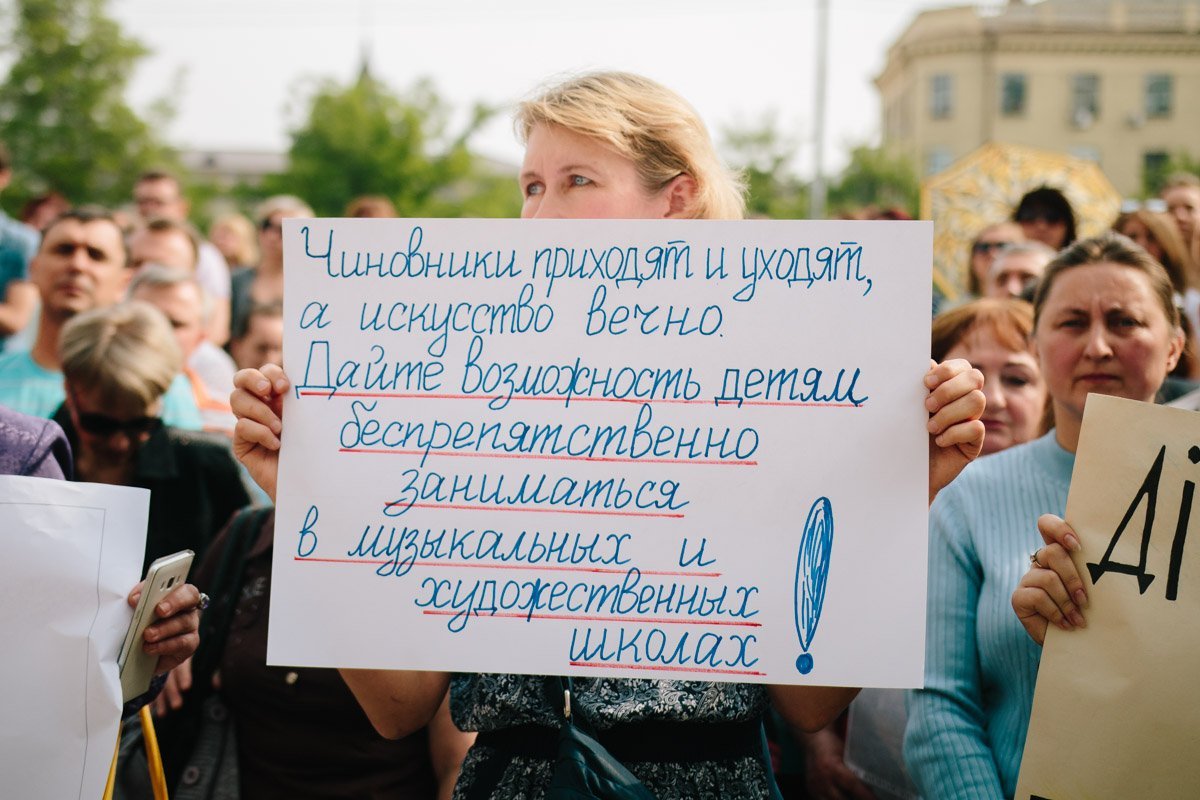 Чиновники приходят и уходят,
а искусство вечно.
Дайте возможность детям
беспрепятственно
заниматься
в музыкальных и
художественных
школах!
Ді